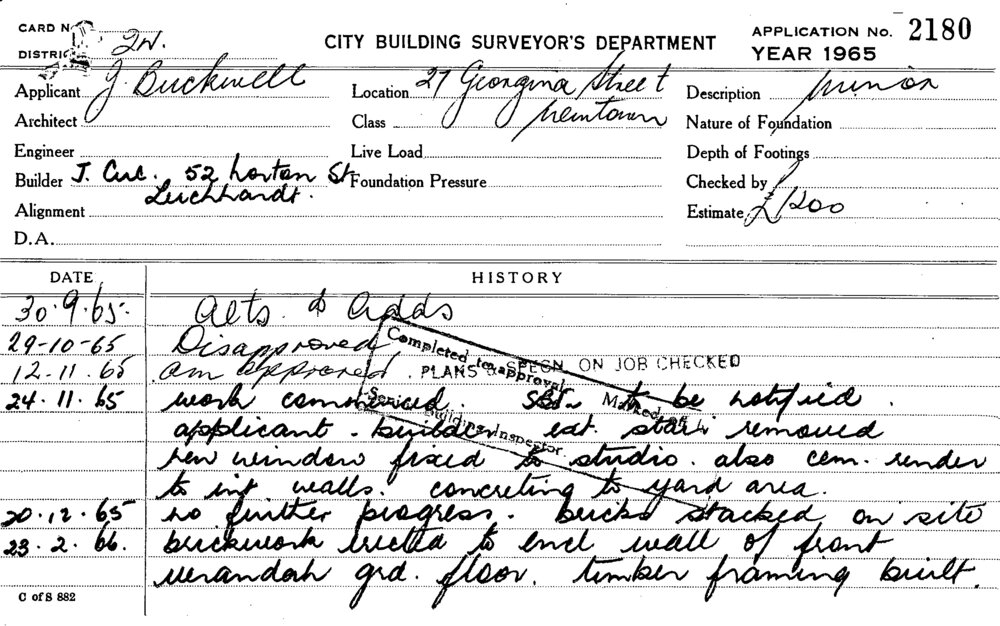 CARD No
DISTRICT 2W.
CITY BUILDING SURVEYOR'S DEPARTMENT
APPLICATION No. 2180
YEAR 1965
Applicant J. Buckwell
Location 27 Georgina Street
Newtown
Description Minor
Architect
Class
Nature of Foundation
Engineer
Live Load
Depth of Footings
Builder J. Cuc. 52 Lorton St
Leichhardt.
Foundation Pressure
Checked by
Alignment
Estimate £1200
D.A.
DATE
HISTORY
30.9.65. Alts. & Adds
29-10-65 Disapproved
12.11.65 am approved. PLANS & SPECN ON JOB CHECKED
Completed to approval
Marked off
Senior Building Inspector.
24.11.65 work commenced. to be notified.
applicant - builder. ext. stair removed
new window fixed to studio. also cem. render
to int walls. concreting to yard area.
20.12.65 no further progress. bricks stacked on site
23.2.66. brickwork erected to end wall of front
verandah grd. floor. timber framing built.
C of S 882